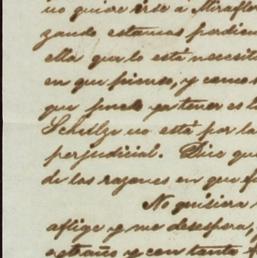 no quiere ir a Miraflor
zando estamos perdien
ella que lo está necesita
en que piensa, y como
que puede ya tener es la
Schultze no está por la
perjudicial. Dice que
de las razones en que f
No quisiera
aflige y me desespera,
y con tanto